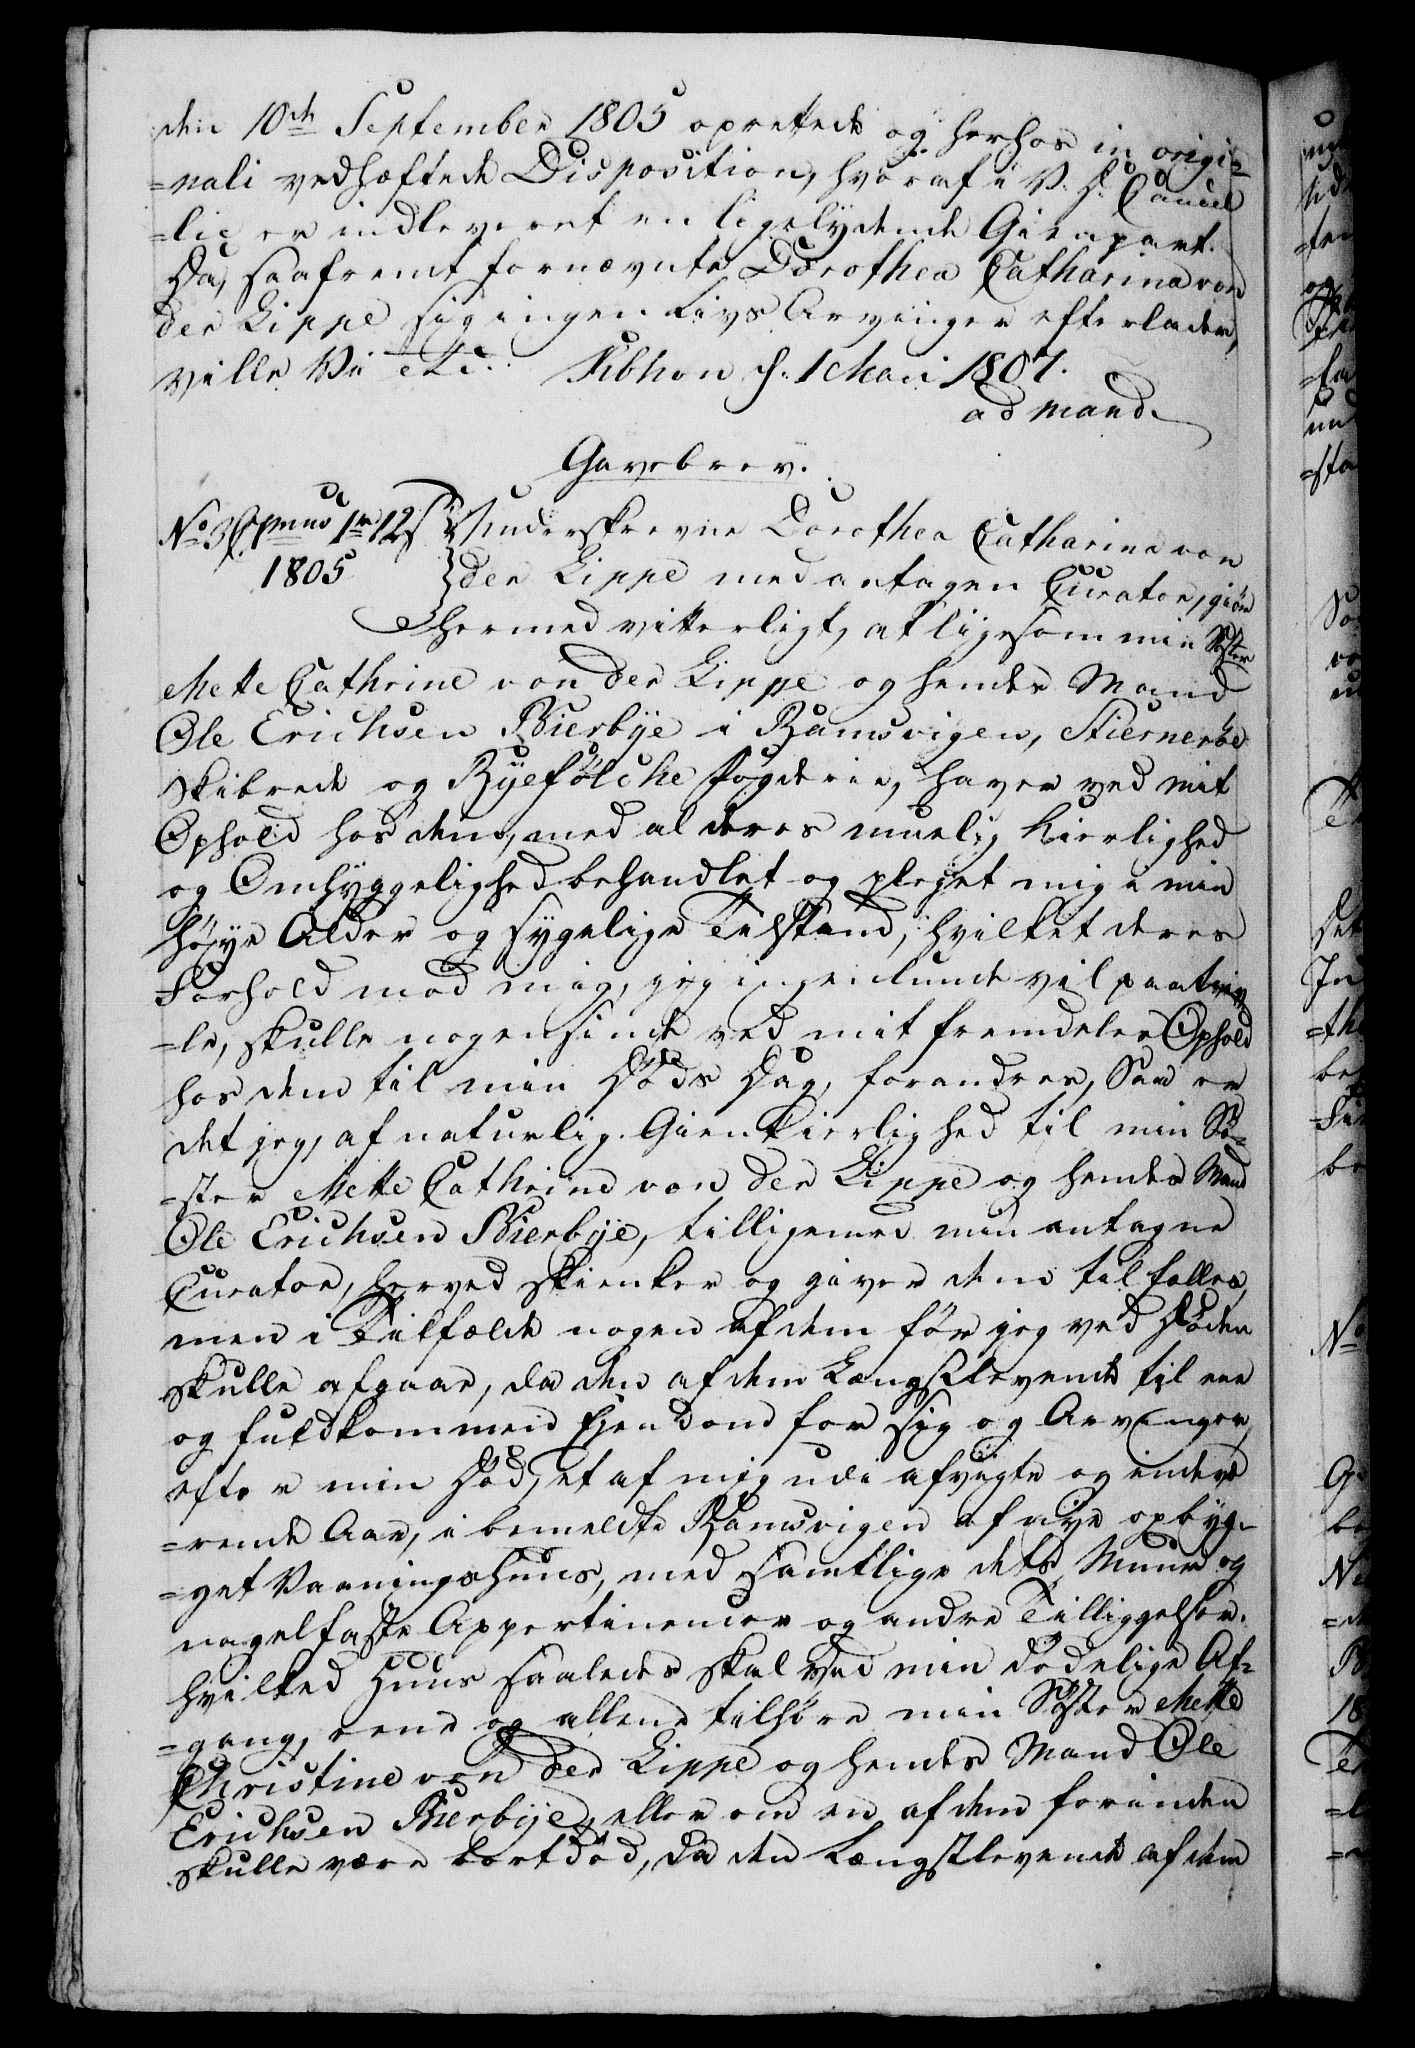 den 10de September 1805 oprettede og herhos in origi-
=nali vedhæftede Disposition, hvoraf i V. D. Cancel
=lie er indleveret en ligelydende Gienpart.
Da, saafremt fornævnte Dorothea Catharina von
der Lippe sig ingen Livs Arvinger efterlader,
ville Vi etc. Kbhvn d. 1 Maii 1807.
ad mand.
Gavebrev.
No 3 1805
Underskrevne Dorothea Catharina von
der Lippe med antagen Curator, giør
hermed vitterligt, at ligesom min Søster
Mette Cathrine von der Lippe og hendes Mand
Ole Erichsen Bierbye i Ramsvigen, Stiernerøe
Skibrede og Ryefølcke Fogderie, haver ved mit
Ophold hos dem, med al deres muelig Kierlighed
og Omhyggelighed behandlet og plejet mig i min
høye Alder og sygelige Tilstand, hvilket deres
Forhold mod mig, jeg ingenlunde vil paatviv
=le, skulle nogensinde ved mit fremdeles Ophold
hos dem til min Døds Dag, forandres, Saa er
det jeg, af naturlig Gienkierlighed til min Sø-
=ster Mette Cathrine von der Lippe og hendes Mand
Ole Erichsen Bierbye, tilligemed min antagne
Curator, herved skienker og giver dem til fælles,
men i Tilfælde nogen af dem før jeg ved Døden
skulle afgaae, da den af dem Længstlevende til eie
og fuldkommen Ejendom for sig og Arvinger,
efter min Død, et af mig udi afvigte og indevæ
=rende Aar, i bemeldte Ramsvigen af nye opbyg-
=get Vaaningshuus, med samtlige dets Muur og
nagelfaste Appertinencier og andre Tilliggelser.
hvilked Huus saaledes skal ved min dødelige Af-
=gang, eene og allene tilhøre min Søster Mette
Christine von der Lippe og hendes Mand Ole
Erichsen Bierbye, eller om en af dem forinden
skulle være bortdød, da den Længstlevende af dem